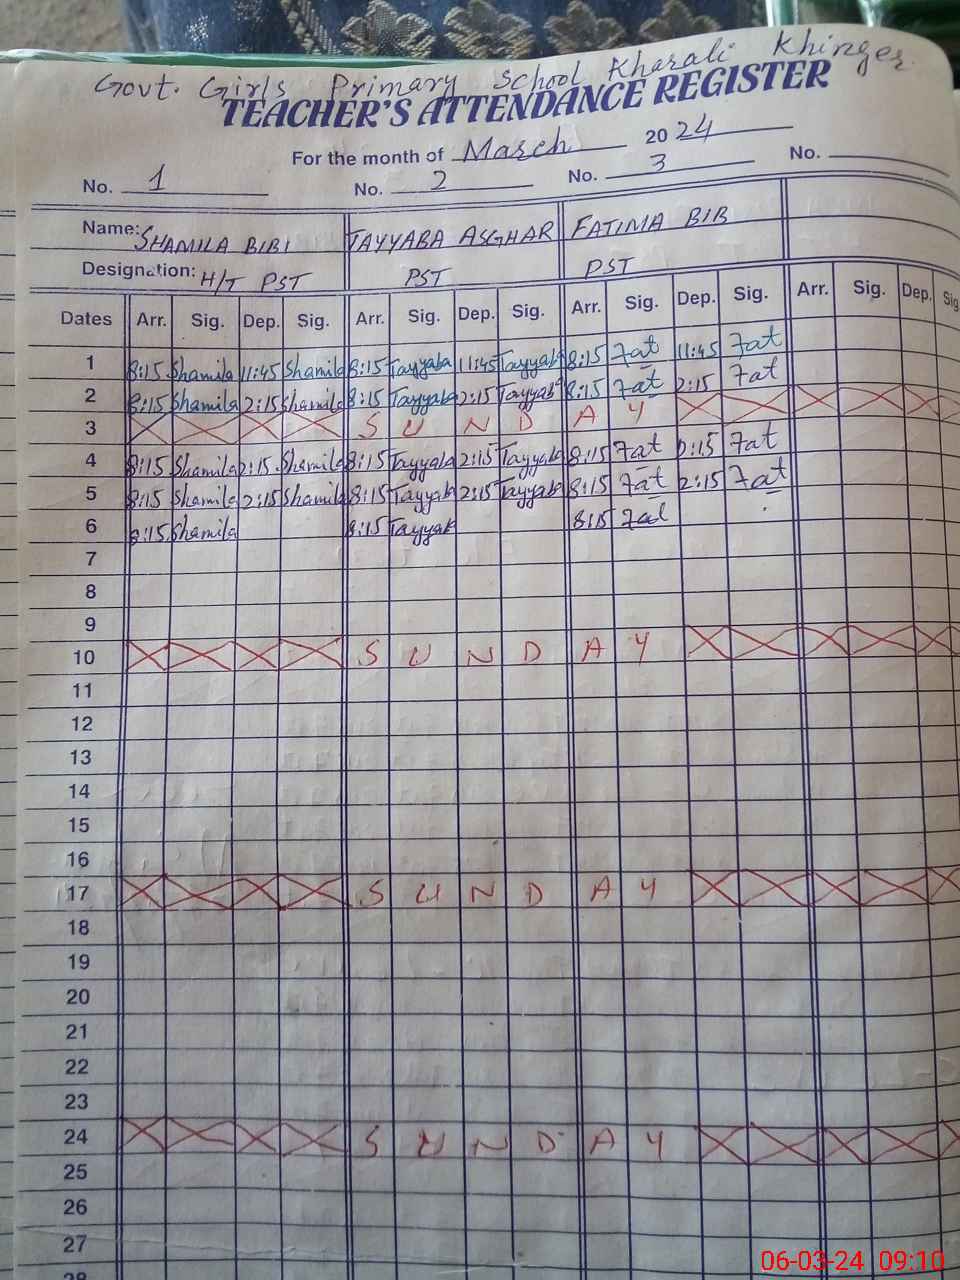 Govt. Girls Primary School Kharali Khinger
TEACHER'S ATTENDANCE REGISTER
For the month of March 2024
No. 1 No. 2 No. 3 No.
Name: SHAMILA BIBI TAYYABA ASGHAR FATIMA BIB
Designation: H/T PST PST PST
Dates Arr. Sig. Dep. Sig. Arr. Sig. Dep. Sig. Arr. Sig. Dep. Sig. Arr. Sig. Dep. Sig
1 8:15 Shamila 11:45 Shamila 8:15 Tayyaba 11:45 Tayyab 8:15 Fat 11:45 Fat
2 8:15 Shamila 2:15 Shamila 8:15 Tayyaba 2:15 Tayyab 8:15 Fat 2:15 Fat
3 S U N D A Y
4 8:15 Shamila 2:15 Shamila 8:15 Tayyaba 2:15 Tayyaba 8:15 Fat 2:15 Fat
5 8:15 Shamila 2:15 Shamila 8:15 Tayyaba 2:15 Tayyaba 8:15 Fat 2:15 Fat
6 8:15 Shamila 8:15 Tayyab 8:15 Fat
7
8
9
10 S U N D A Y
11
12
13
14
15
16
17 S U N D A Y
18
19
20
21
22
23
24 S U N D A Y
25
26
27
28
06-03-24 09:10